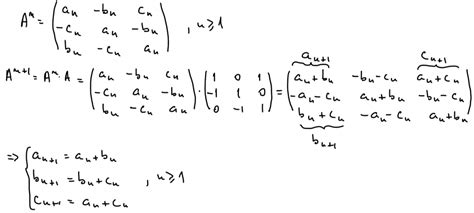 Aⁿ = ( aₙ -bₙ cₙ ; -cₙ aₙ -bₙ ; bₙ -cₙ aₙ ) , n ≥ 1
aₙ₊₁ cₙ₊₁
Aⁿ⁺¹ = Aⁿ · A = ( aₙ -bₙ cₙ ; -cₙ aₙ -bₙ ; bₙ -cₙ aₙ ) · ( 1 0 1 ; -1 1 0 ; 0 -1 1 ) = ( aₙ+bₙ -bₙ-cₙ aₙ+cₙ ; -aₙ-cₙ aₙ+bₙ -bₙ-cₙ ; bₙ+cₙ -aₙ-cₙ aₙ+bₙ )
bₙ₊₁
⇒ { aₙ₊₁ = aₙ+bₙ
bₙ₊₁ = bₙ+cₙ , n ≥ 1
cₙ₊₁ = aₙ+cₙ